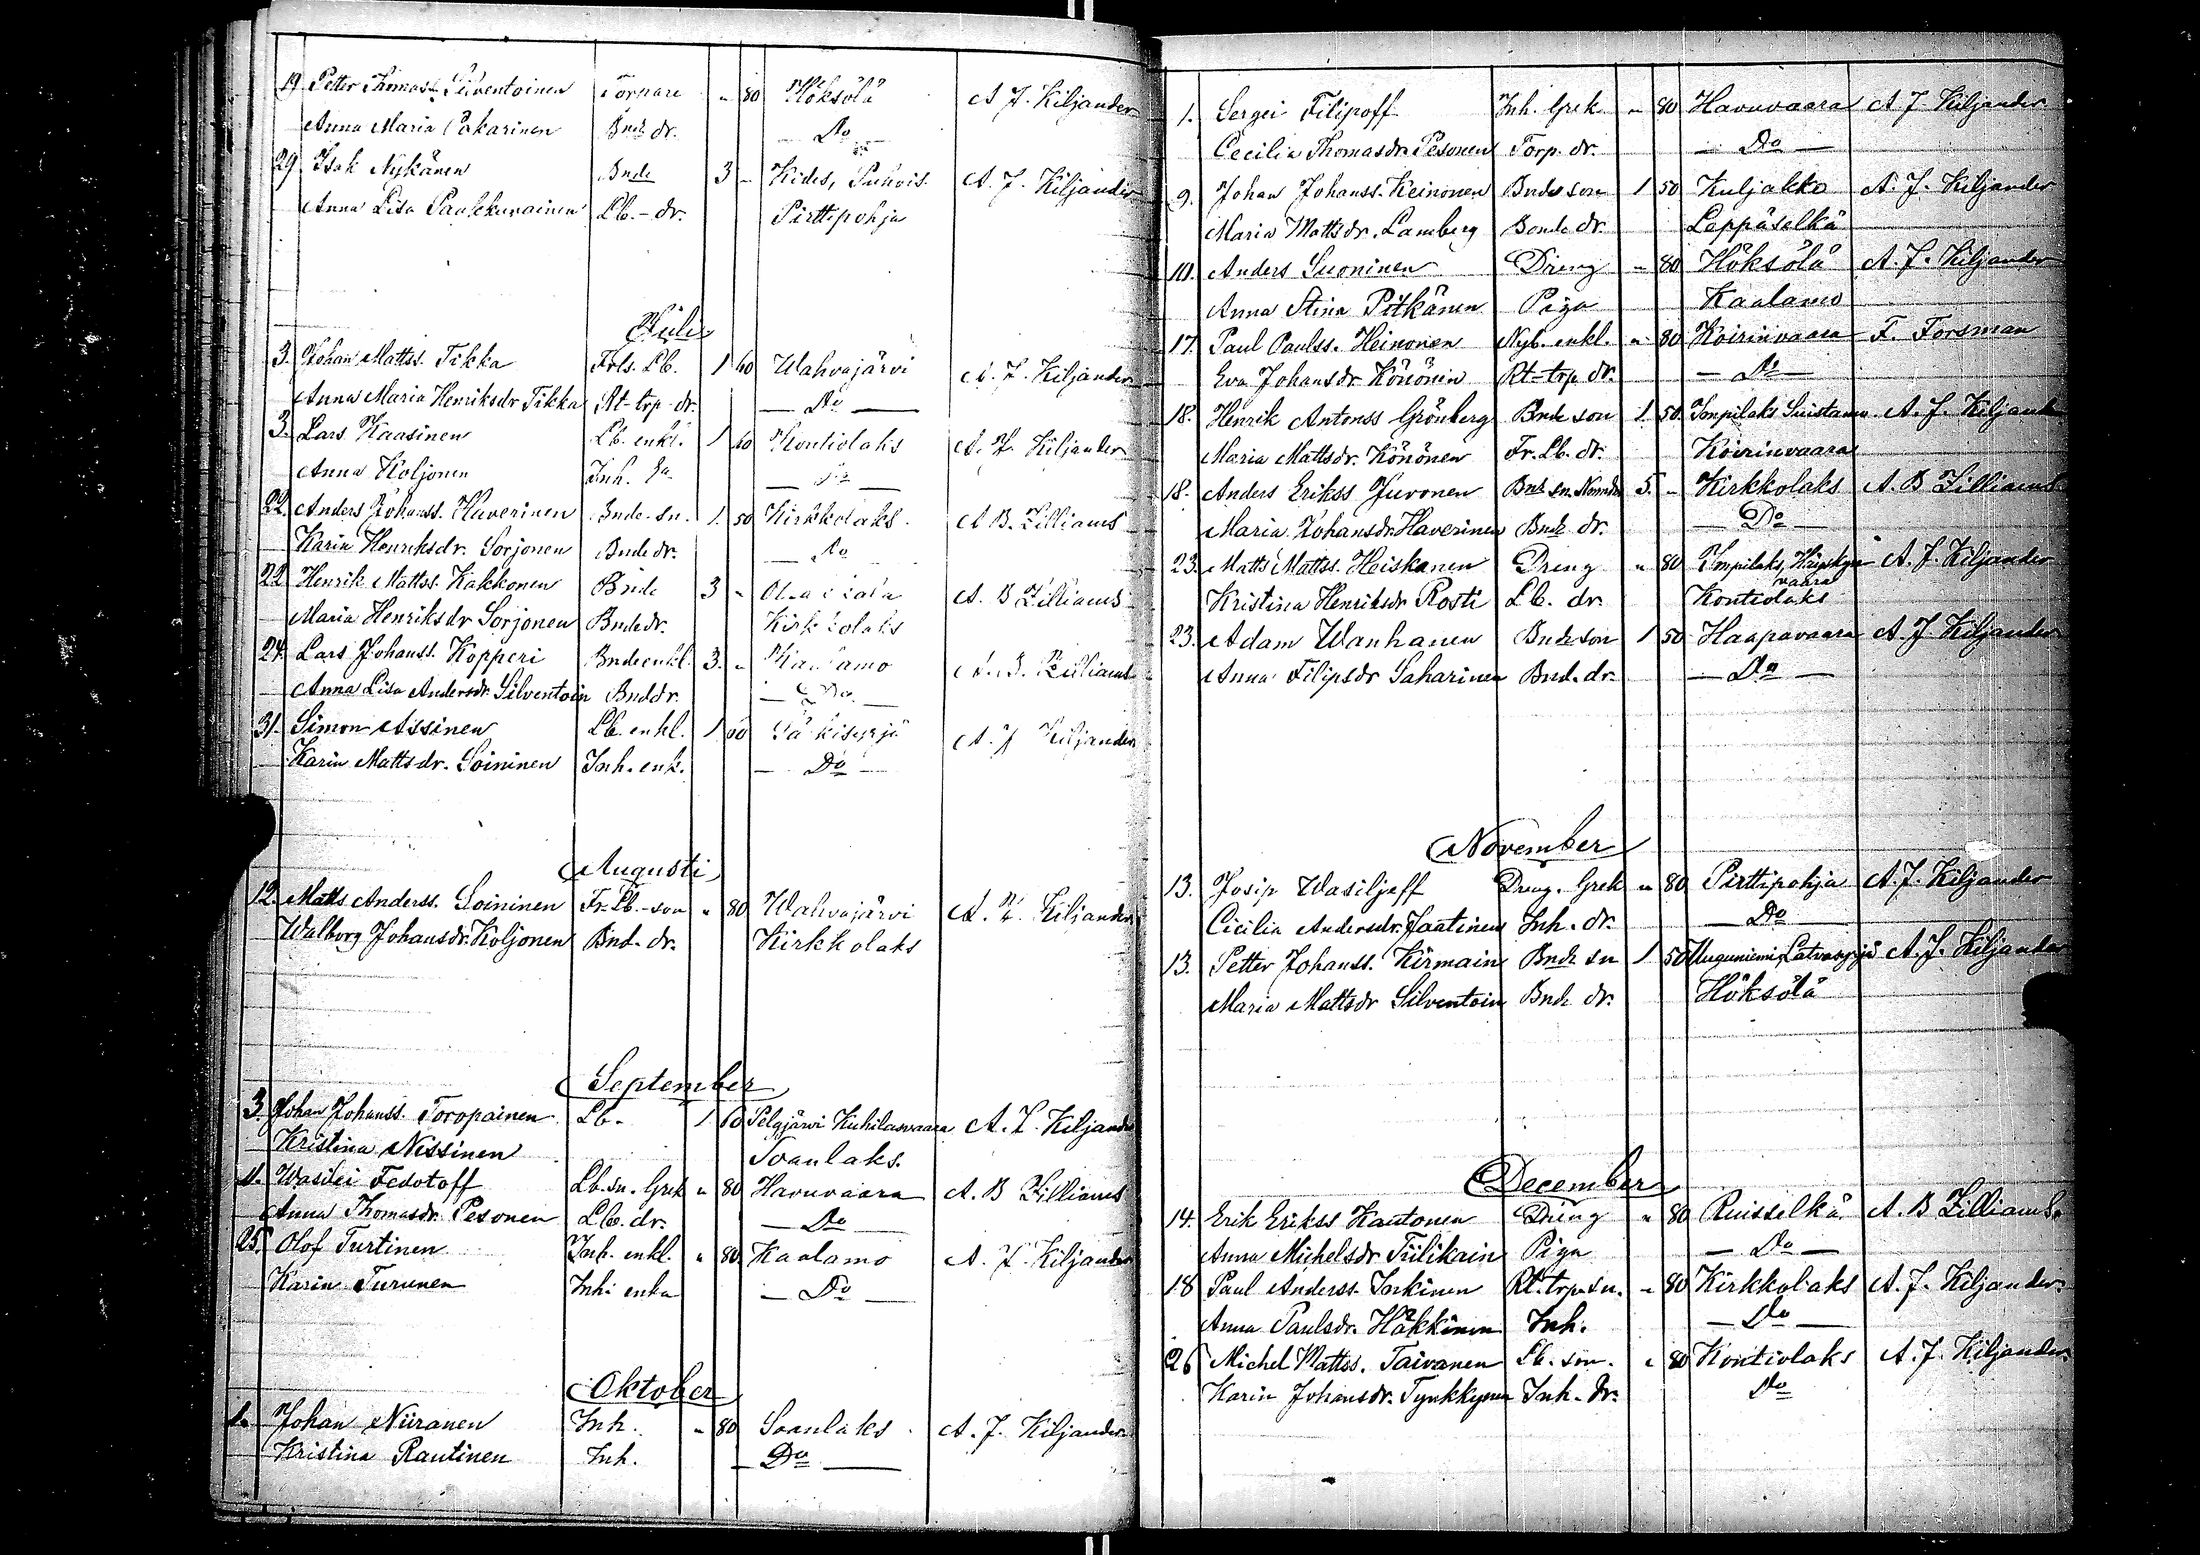 19 Petter Thomass. Silventoinen Torpare " 80 Höksölä A J. Kiljander
Anna Maria Pakarinen Bnd dr. — Do —
29. Isak Nykänen Bnde 3 - Kides, Puhois. A. J. Kiljander
Anna Lisa Paakkunainen Lb. - dr. Pirttipohja
Juli
3. Johan Mattss. Tikka Frls. Lb. 1 60 Wahvajärvi A. J. Kiljander
Anna Maria Henriksdr Tikka Rt-trp-dr. — Do —
3. Lars Kaasinen Lb. enkl. 1 60 Kontiolaks A. J. Kiljander
Anna Koljonen Inh. — Do —
22. Anders Johanss. Haverinen Bnde-sn. 1. 50 Kirkkolaks. A B. Zilliams
Karin Henriksdr. Sorjonen Bnde dr. — Do
22 Henrik Mattss. Kakkonen Bnde 3 - A. B Zilliams
Maria Henriksdr Sorjonen Bnde dr. Kirkkolaks
24. Lars Johanss. Kopperi Bnde enkl. 3. - Kaalamo A. B. Zilliams
Anna Lisa Andersdr. Silventoin Bnd dr. — Do —
31. Simon Assinen Lb. enkl. 1 60 A. J Kiljander
Karin Mattsdr. Soininen Inh. enk. — Do —
Augusti
12. Matts Anderss. Soininen Fr. Lb. - son " 80 Wahvajärvi A. J. Kiljander
Walborg Johansdr. Koljonen Bnd. dr. Kirkkolaks
September
3. Johan Johanss. Toropainen Lb. 1 60 Pelgjärvi Kuhilasvaara A. J. Kiljander
Kristina Nissinen Soanlaks.
11. Wasilei Fedotoff Lb. sn. Grek " 80 Havuvaara A. B Zilliams
Anna Thomasdr. Pesonen Lb. dr. — Do —
25. Olof Turtinen Inh. enkl. " 80 Kaalamo A. J. Kiljander
Karin Turunen Inh: enka — Do —
Oktober
1. Johan Niiranen Inh. " 80 Soanlaks. A. J. Kiljander
Kristina Rautinen Inh. — Do —
1. Sergei Filipoff Inh. Grek " 80 Havuvaara A J. Kiljander
Cecilia Thomasdr. Pesonen Torp. dr. — Do —
9. Johan Johanss. Keinonen Bnde son 1 50 Kuljakko A. J. Kiljander
Maria Mattsdr. Lamberg Bonde dr. Leppäselkä
10. Anders Suoninen Dreng " 80 Höksölä A. J. Kiljander
Anna Stina Pitkänen Piga Kaalamo
17. Paul Paulss. Heinonen Nyb. enkl. " 80 Koirinvaara F. Forsman
Eva Johansdr. Könönen Rt-trp. dr. — Do —
18. Henrik Antonss Grönberg Bnde son 1. 50 Impilaks Suistamo A. J. Kiljander
Maria Mattsdr. Könönen Fr. Lb. dr. Koirinvaara
18. Anders Erikss Juvonen Bnde sn. 5. - Kirkkolaks A. B Zilliams
Maria Johansdr. Haverinen Bnde dr. — Do —
23. Matts Mattss. Heiskanen Dreng " 80 Impilaks, vaara A. J. Kiljander
Kristina Henriksdr Rosti Lb. dr. Kontiolaks
23. Adam Wanhanen Bnde son 1 50 Haapavaara A J Kiljander
Anna Filipsdr Saharinen Bnd. dr. — Do —
November
13. Josip Wasiljeff Dreng. Grek " 80 Pirttipohja A J. Kiljander
Cicilia Andersdr. Jaatinen Inh. dr. — Do —
13. Petter Johanss. Kirmain Bnde sn 1 50 Uuguniemi, Latvasyrjä A. J. Kiljander
Maria Mattsdr Silventoin Bnde dr. Höksölä
December
14. Erik Erikss Kautonen Dreng " 80 Ruisselkä A. B Zilliams
Anna Michelsdr Tiilikain Piga — Do —
18 Paul Anderss. Inkinen Rt-trp. sn. " 80 Kirkkolaks A. J. Kiljander
Anna Paulsdr. Häkkinen Inh. — Do —
26 Michel Mattss. Taivanen Lb. son. " 80 Kontiolaks A. J. Kiljander
Karin Johansdr. Tynkkynen Inh. dr. Do